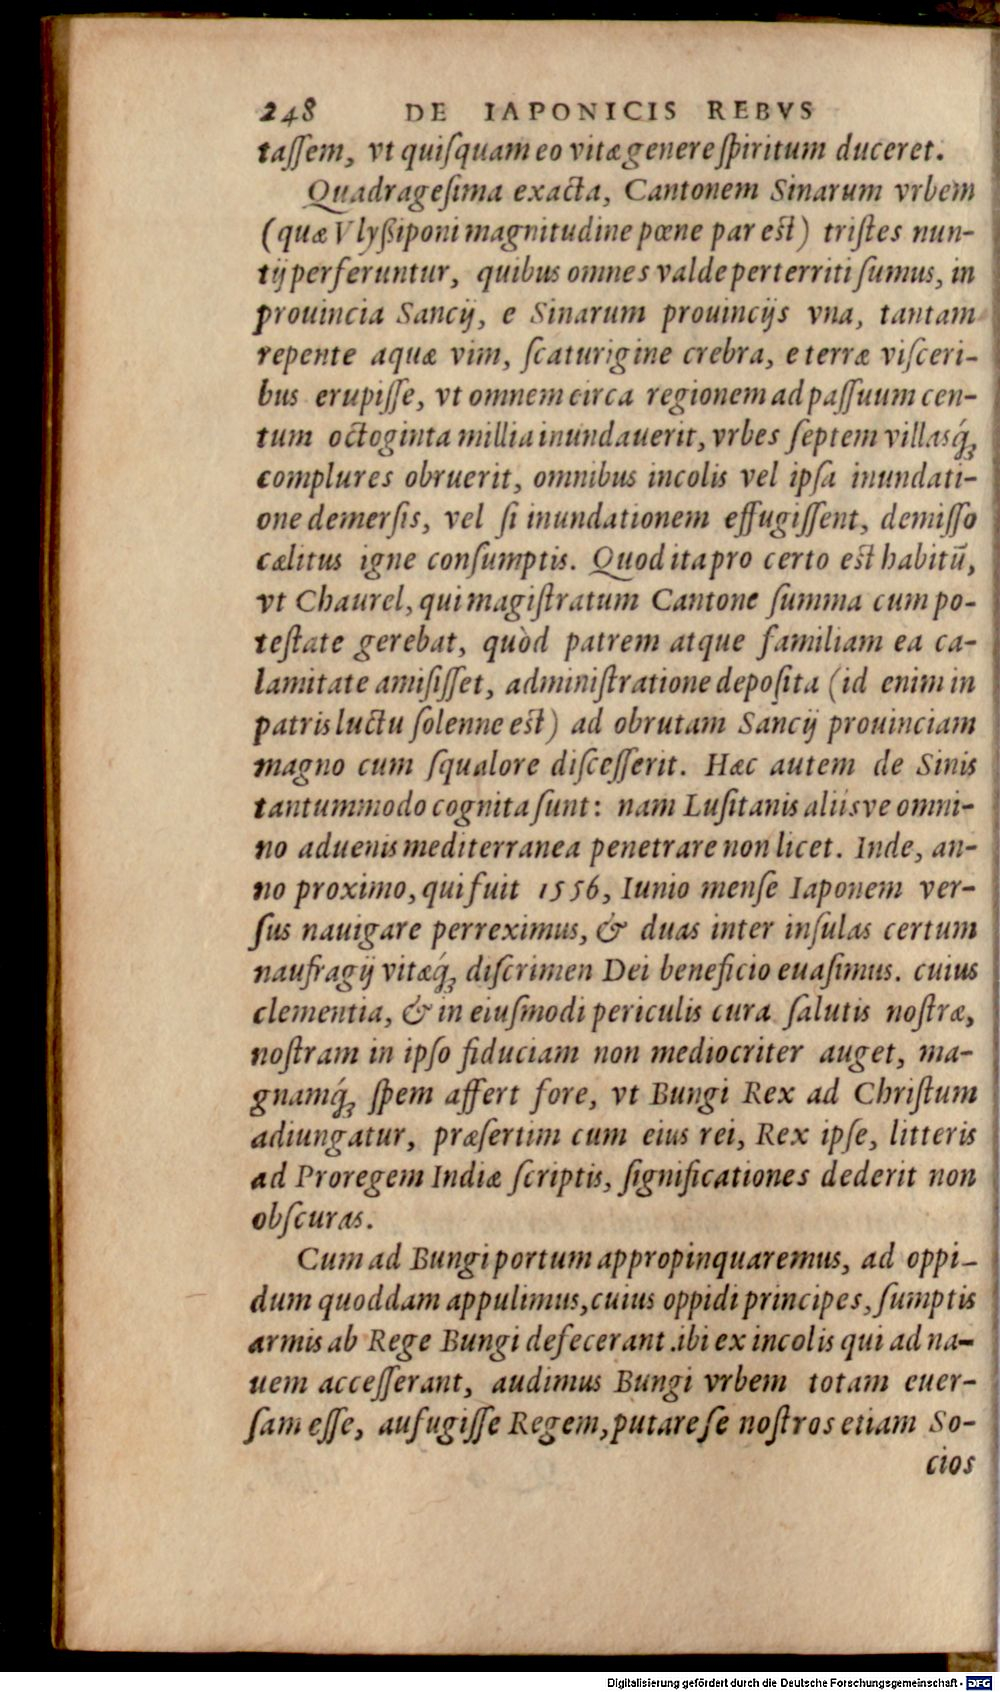 248 DE IAPONICIS REBVS
taſſem, vt quiſquam eo vitæ genere ſpiritum duceret.
Quadrageſima exacta, Cantonem Sinarum vrbem
(quæ Vlyßiponi magnitudine pœne par est) triſtes nun-
tij perferuntur, quibus omnes valde perterriti ſumus, in
prouincia Sancij, e Sinarum prouincijs vna, tantam
repente aquæ vim, ſcaturigine crebra, e terræ viſceri-
bus erupiſſe, vt omnem circa regionem ad paſſuum cen-
tum octoginta millia inundauerit, vrbes ſeptem villasq́;
complures obruerit, omnibus incolis vel ipſa inundati-
one demerſis, vel ſi inundationem effugiſſent, demiſſo
cælitus igne conſumptis. Quod ita pro certo est habitũ,
vt Chaurel, qui magiſtratum Cantone ſumma cum po-
teſtate gerebat, quòd patrem atque familiam ea ca-
lamitate amiſiſſet, adminiſtratione depoſita (id enim in
patris luctu ſolenne est) ad obrutam Sancij prouinciam
magno cum ſqualore diſceſſerit. Hæc autem de Sinis
tantummodo cognita ſunt: nam Luſitanis aliisve omni-
no aduenis mediterranea penetrare non licet. Inde, an-
no proximo, qui fuit 1556, Iunio menſe Iaponem ver-
ſus nauigare perreximus, & duas inter inſulas certum
naufragij vitæq́; diſcrimen Dei beneficio euaſimus. cuius
clementia, & in eiuſmodi periculis cura ſalutis noſtræ,
noſtram in ipſo fiduciam non mediocriter auget, ma-
gnamq́; ſpem affert fore, vt Bungi Rex ad Chriſtum
adiungatur, præſertim cum eius rei, Rex ipſe, litteris
ad Proregem Indiæ ſcriptis, ſignificationes dederit non
obſcuras.
Cum ad Bungi portum appropinquaremus, ad oppi-
dum quoddam appulimus, cuius oppidi principes, ſumptis
armis ab Rege Bungi defecerant. ibi ex incolis qui ad na-
uem acceſſerant, audimus Bungi vrbem totam euer-
ſam eſſe, aufugiſſe Regem, putare ſe noſtros etiam So-
cios
Digitalisierung gefördert durch die Deutsche Forschungsgemeinschaft - DFG